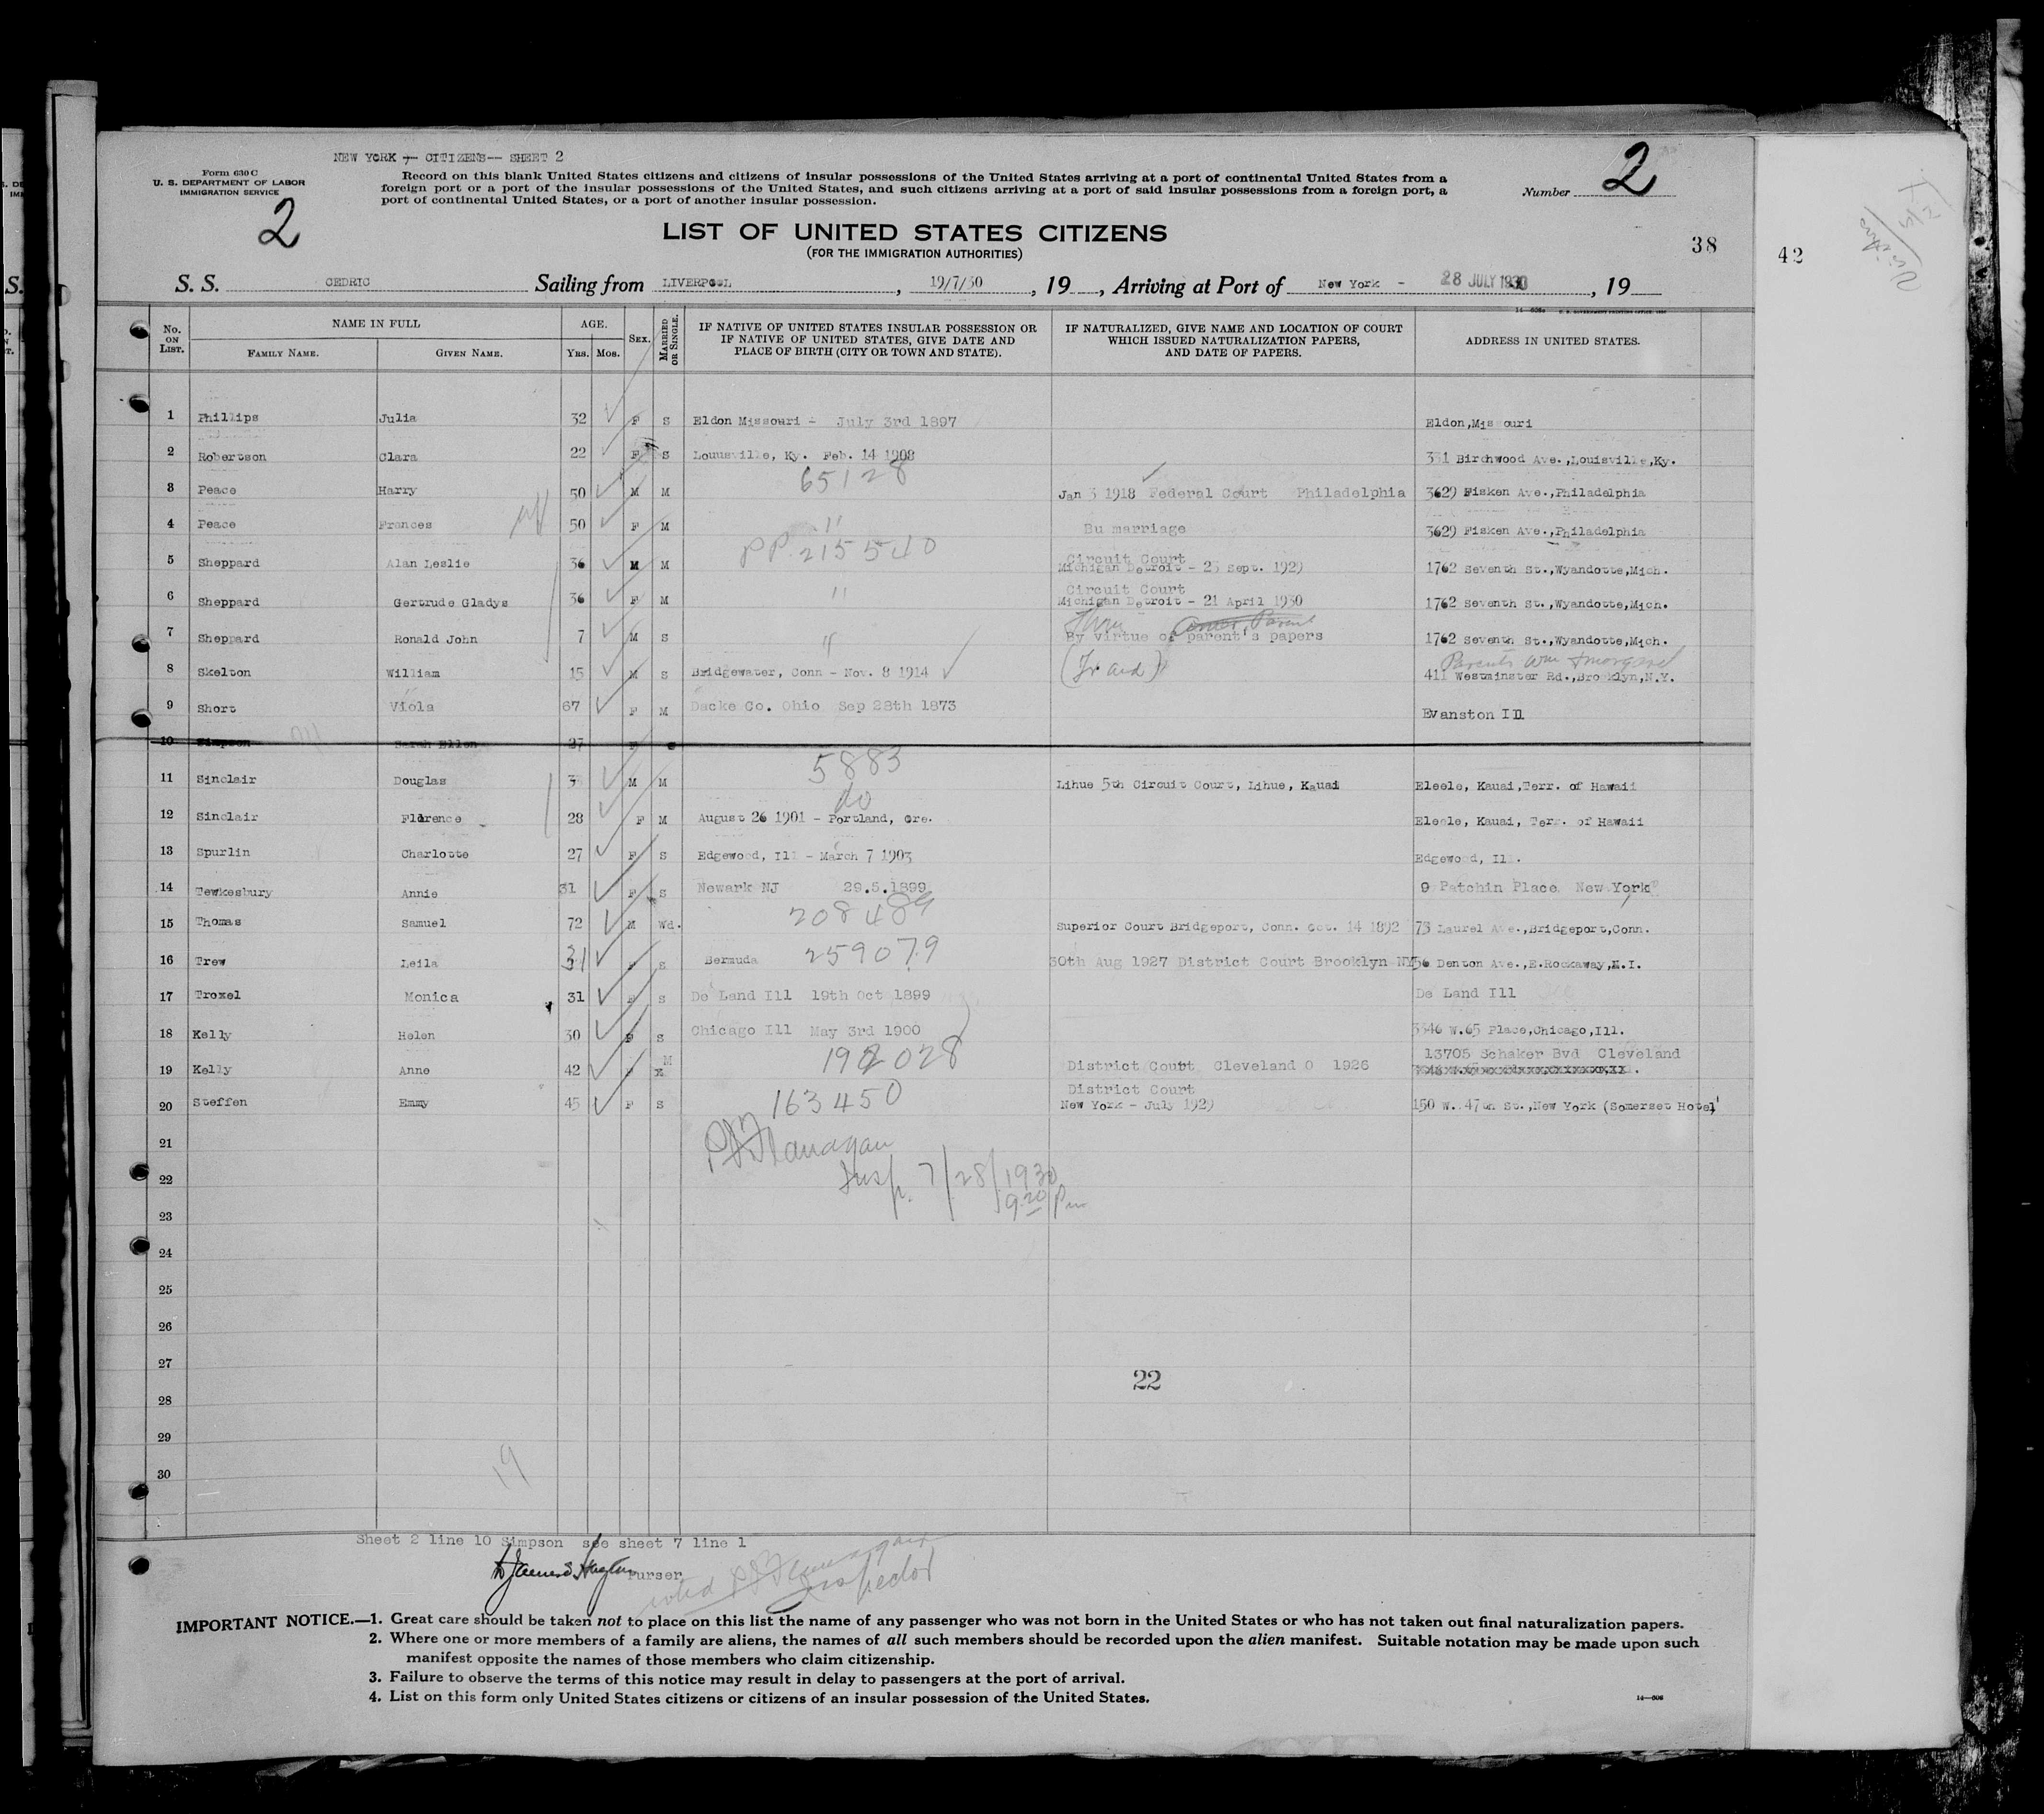 NEW YORK - CITIZENS-- SHEET 2
Form 630 C
U. S. DEPARTMENT OF LABOR
IMMIGRATION SERVICE
2
Record on this blank United States citizens and citizens of insular possessions of the United States arriving at a port of continental United States from a
foreign port or a port of the insular possessions of the United States, and such citizens arriving at a port of said insular possessions from a foreign port, a
port of continental United States, or a port of another insular possession.
Number 2
LIST OF UNITED STATES CITIZENS
(FOR THE IMMIGRATION AUTHORITIES)
38
42
S. S. CEDRIC Sailing from LIVERPOOL, 19/7/30, 19 , Arriving at Port of New York - 28 JULY 1930, 19
No. ON LIST. NAME IN FULL FAMILY NAME. GIVEN NAME. AGE. YRS. MOS. SEX. MARRIED OR SINGLE. IF NATIVE OF UNITED STATES INSULAR POSSESSION OR IF NATIVE OF UNITED STATES, GIVE DATE AND PLACE OF BIRTH (CITY OR TOWN AND STATE). IF NATURALIZED, GIVE NAME AND LOCATION OF COURT WHICH ISSUED NATURALIZATION PAPERS, AND DATE OF PAPERS. ADDRESS IN UNITED STATES.
1 Phillips Julia 32 F S Eldon Missouri - July 3rd 1897 Eldon,Missouri
2 Robertson Clara 22 F S Louusville, Ky. Feb. 14 1908 331 Birchwood Ave.,Louisville,Ky.
3 Peace Harry 50 M M 65128 Jan 3 1918 Federal Court Philadelphia 3629 Fisken Ave.,Philadelphia
4 Peace Frances 50 F M " Bu marriage 3629 Fisken Ave.,Philadelphia
5 Sheppard Alan Leslie 36 M M PP. 215540 Circuit Court Michigan Detroit - 23 Sept. 1929 1762 Seventh St.,Wyandotte,Mich.
6 Sheppard Gertrude Gladys 36 F M " Circuit Court Michigan Detroit - 21 April 1930 1762 Seventh St.,Wyandotte,Mich.
7 Sheppard Ronald John 7 M S " By virtue of parent's papers 1762 Seventh St.,Wyandotte,Mich.
8 Skelton William 15 M S Bridgewater, Conn - Nov. 8 1914 Parents Wm & Margaret 411 Westminster Rd.,Brooklyn,N.Y.
9 Short Viola 67 F M Dacke Co. Ohio Sep 28th 1873 Evanston Ill
10 Simpson Sarah Ellen 27 F S
11 Sinclair Douglas M M 5883 Lihue 5th Circuit Court, Lihue, Kauai Eleele, Kauai,Terr. of Hawaii
12 Sinclair Florence 28 F M do August 26 1901 - Portland, Ore. Eleele, Kauai, Terr. of Hawaii
13 Spurlin Charlotte 27 F S Edgewood, Ill - March 7 1903 Edgewood, Ill.
14 Tewkesbury Annie 31 F S Newark NJ 29.5.1899 9 Patchin Place New York
15 Thomas Samuel 72 M Wd. 208489 Superior Court Bridgeport, Conn. Oct. 14 1892 73 Laurel Ave.,Bridgeport,Conn.
16 Trew Leila 31 F S Bermuda 259079 30th Aug 1927 District Court Brooklyn NY 56 Denton Ave.,E.Rockaway,L.I.
17 Troxel Monica 31 F S De Land Ill 19th Oct 1899 De Land Ill
18 Kelly Helen 30 F S Chicago Ill May 3rd 1900 3346 W.65 Place,Chicago,Ill.
19 Kelly Anne 42 F M 192028 District Court Cleveland O 1926 13705 Schaker Bvd Cleveland
20 Steffen Emmy 45 F S 163450 District Court New York - July 1929 150 W. 47th St.,New York (Somerset Hotel)
21
PJ Flanagan
22
Insp. 7/28/1930
9 20 Pm
23
24
25
26
27
22
28
29
30
19
Sheet 2 line 10 Simpson see sheet 7 line 1
Purser
Inspector
IMPORTANT NOTICE.—1. Great care should be taken not to place on this list the name of any passenger who was not born in the United States or who has not taken out final naturalization papers.
2. Where one or more members of a family are aliens, the names of all such members should be recorded upon the alien manifest. Suitable notation may be made upon such
manifest opposite the names of those members who claim citizenship.
3. Failure to observe the terms of this notice may result in delay to passengers at the port of arrival.
4. List on this form only United States citizens or citizens of an insular possession of the United States.
14—606